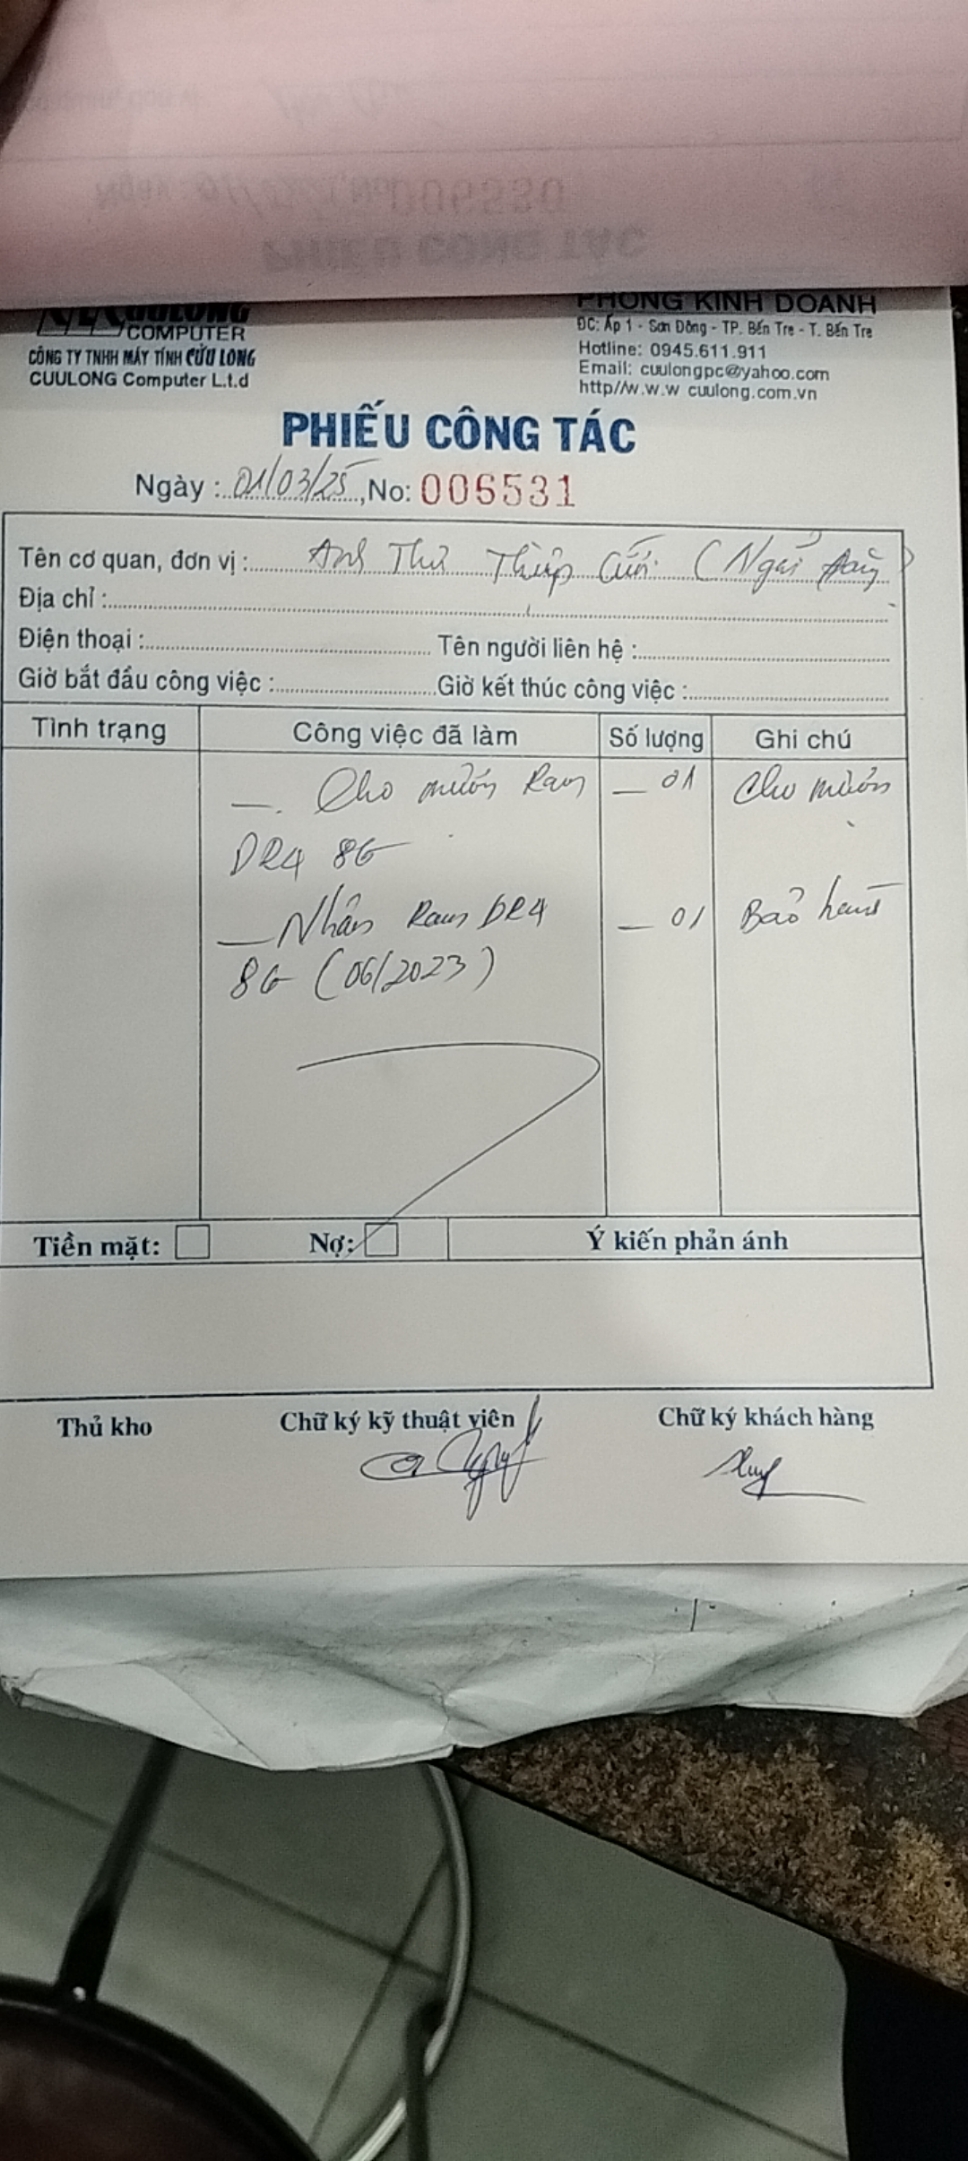 CUULONG
COMPUTER
CÔNG TY TNHH MÁY TÍNH CỬU LONG
CUULONG Computer L.t.d
PHÒNG KINH DOANH
ĐC: Ấp 1 - Sơn Đông - TP. Bến Tre - T. Bến Tre
Hotline: 0945.611.911
Email: cuulongpc@yahoo.com
http//w.w.w cuulong.com.vn
PHIẾU CÔNG TÁC
Ngày : 01/03/25, No: 006531
Tên cơ quan, đơn vị : Anh Thư
Địa chỉ :
Điện thoại : Tên người liên hệ :
Giờ bắt đầu công việc : Giờ kết thúc công việc :
Tình trạng Công việc đã làm Số lượng Ghi chú
- Cho mượn Ram - 01 Cho mượn
DR4 8G
- Nhận Ram DR4 - 01 Bảo hành
8G (06/2023)
Tiền mặt: Nợ: Ý kiến phản ánh
Thủ kho Chữ ký kỹ thuật viên Chữ ký khách hàng